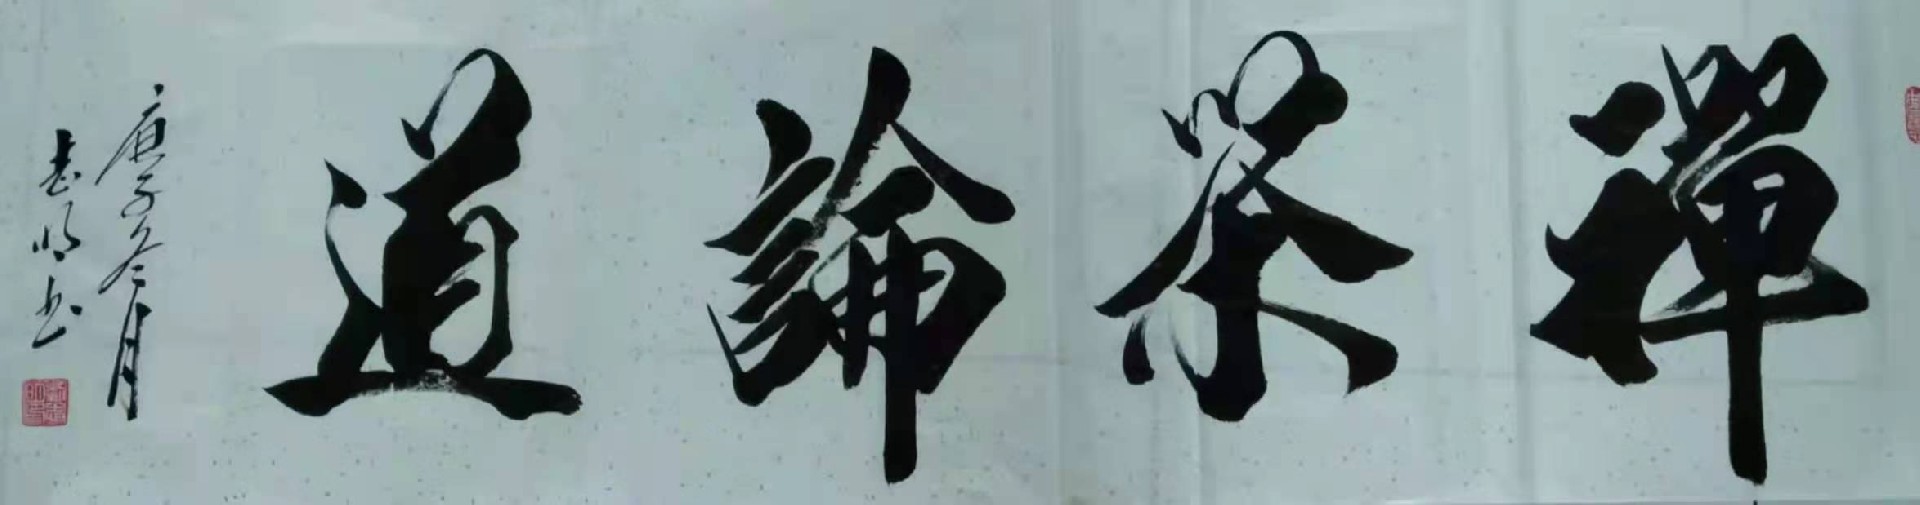 禪茶論道
庚子冬月
志明书